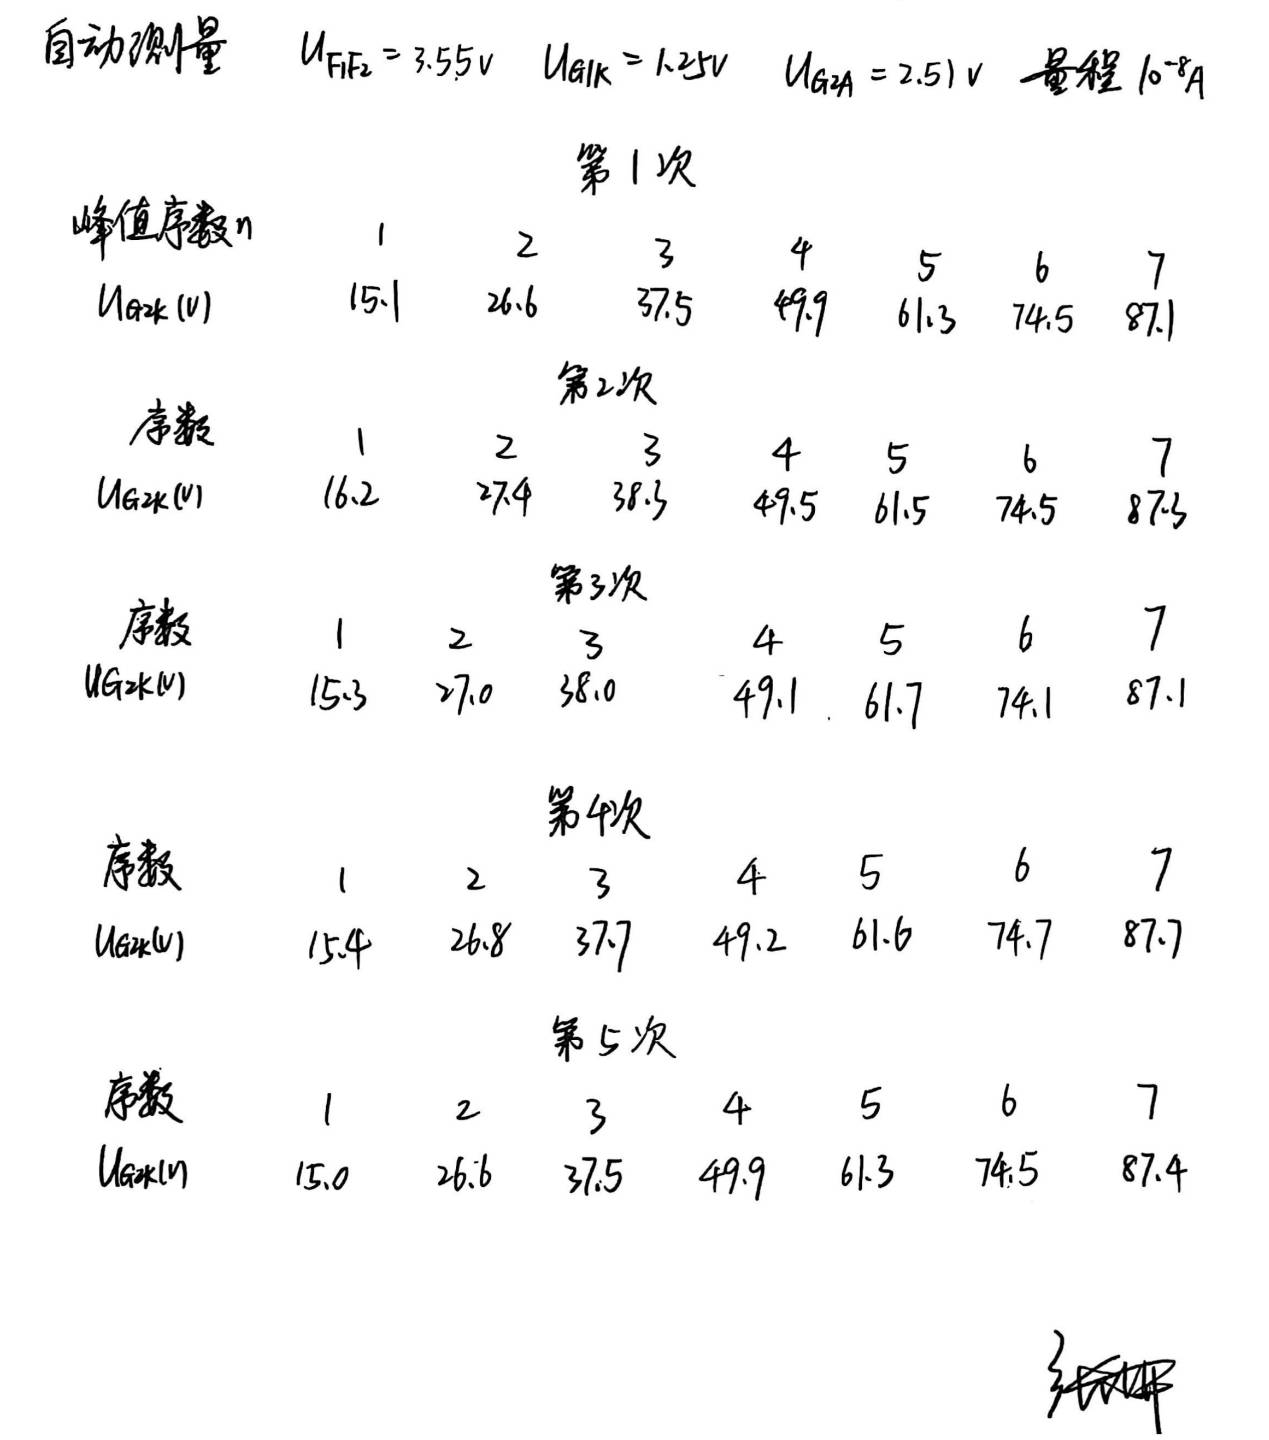 自动测量 UF1F2 = 3.55V UG1K = 1.25V UG2A = 2.51V 量程 10⁻⁸A
第1次
峰值序数n 1 2 3 4 5 6 7
UG2K(V) 15.1 26.6 37.5 49.9 61.3 74.5 87.1
第2次
序数 1 2 3 4 5 6 7
UG2K(V) 16.2 27.4 38.3 49.5 61.5 74.5 87.3
第3次
序数 1 2 3 4 5 6 7
UG2K(V) 15.3 27.0 38.0 49.1 61.7 74.1 87.1
第4次
序数 1 2 3 4 5 6 7
UG2K(V) 15.4 26.8 37.7 49.2 61.6 74.7 87.7
第5次
序数 1 2 3 4 5 6 7
UG2K(V) 15.0 26.6 37.5 49.9 61.3 74.5 87.4